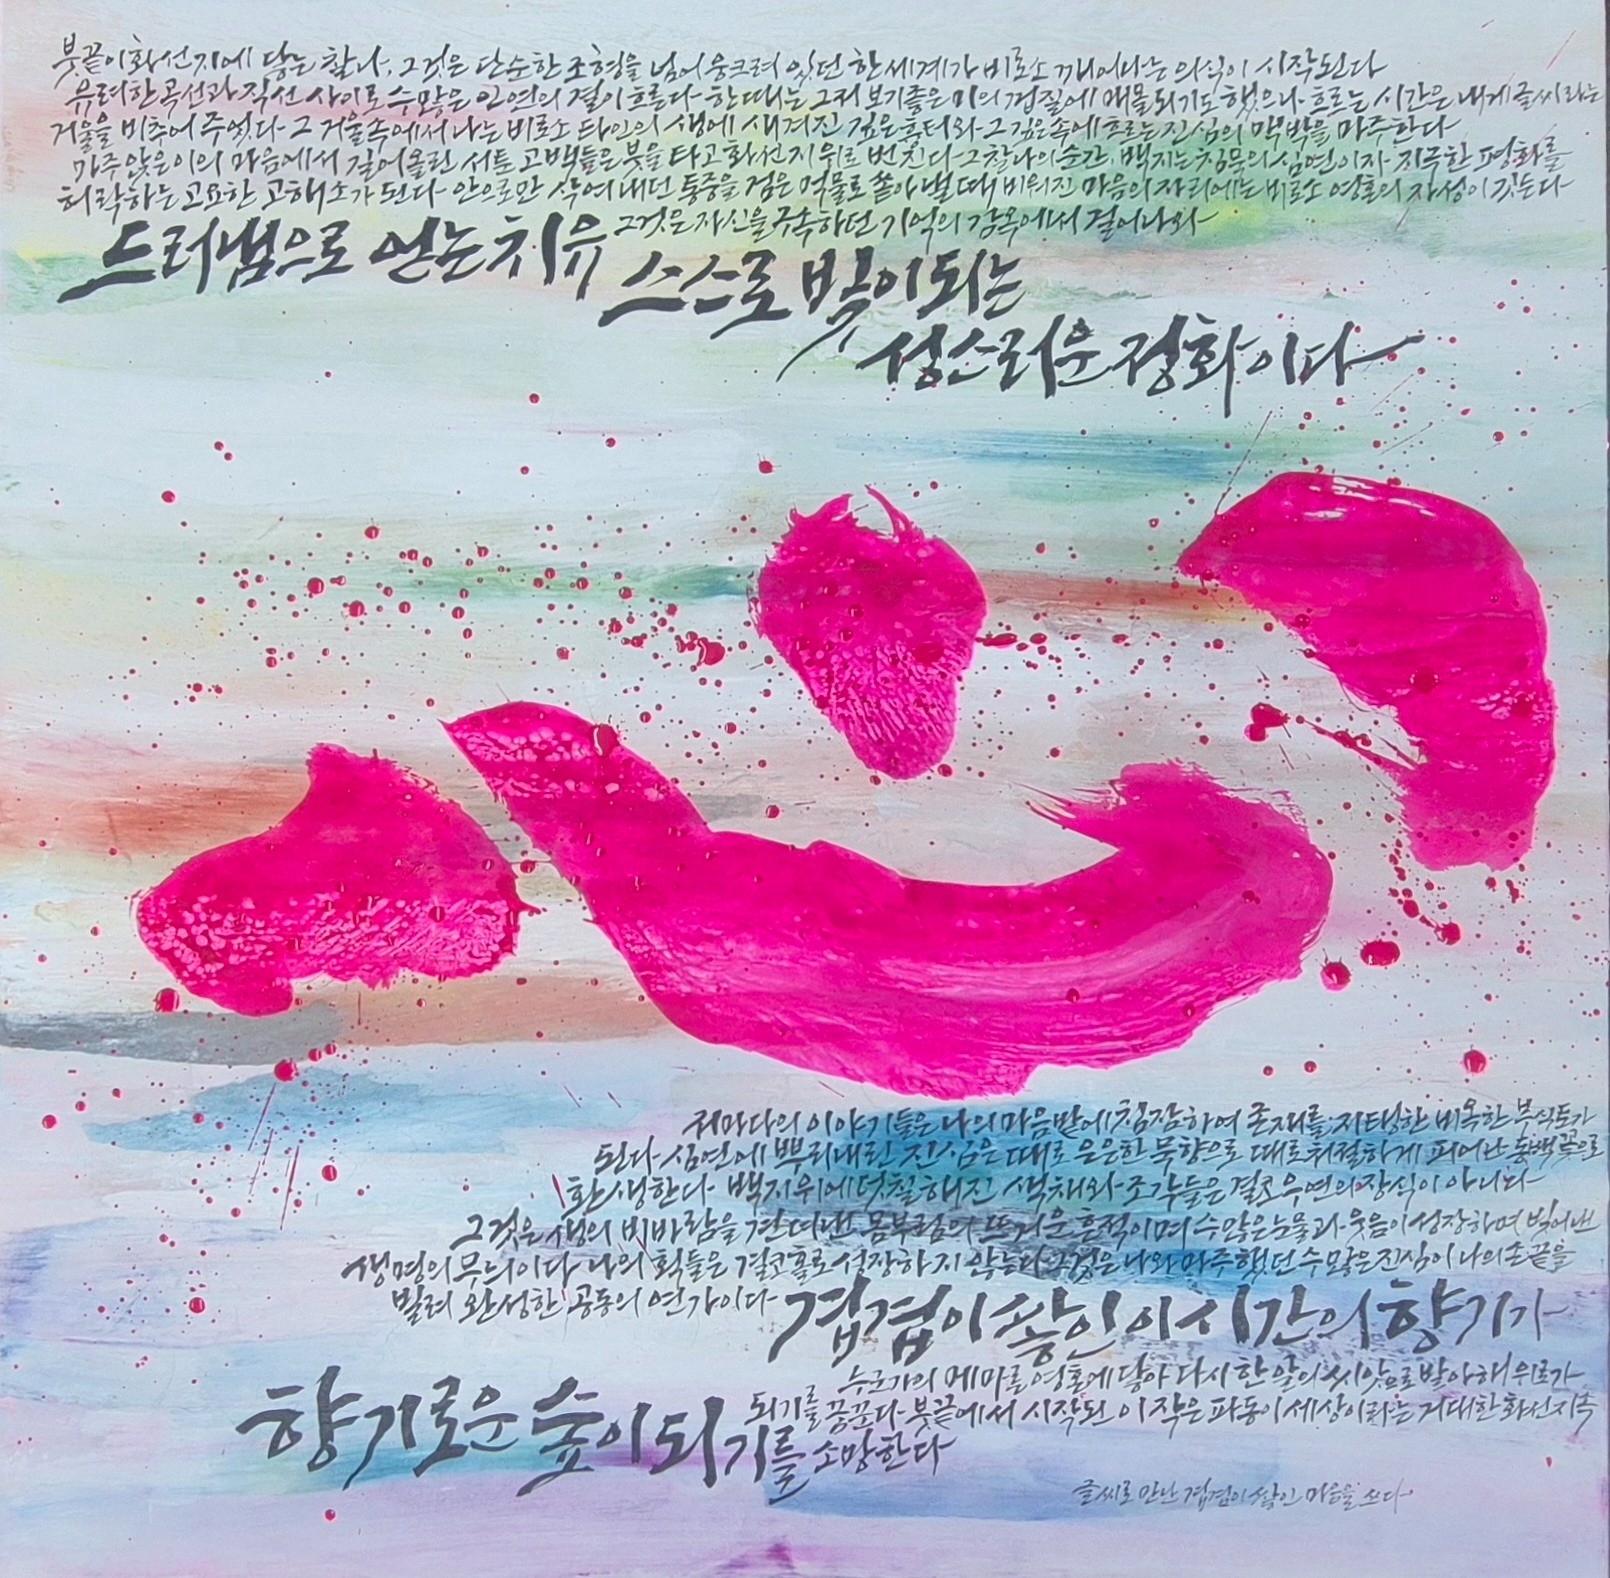 붓끝이 화선지에 닿는 찰나, 그것은 단순한 조형을 넘어 웅크려 있던 한 세계가 비로소 깨어나는 의식이 시작된다
유려한 곡선과 직선 사이로 수많은 인연의 결이 흐른다 한때는 그저 보기좋은 미의 겉질에 매몰되기도 했으나 흐르는 시간은 내게 글씨라는
거울을 비추어 주었다 그 거울속에서 나는 비로소 타인의 생에 새겨진 깊은 흉터와 그 깊은 속에 흐르는 진심의 맥박을 마주한다
마주 앉은 이의 마음에서 길어올린 서툰 고백들은 붓을 타고 화선지 위로 번진다 그 찰나의 순간, 백지는 침묵의 심연이자 지극한 평화를
허락하는 고요한 고해소가 된다 안으로만 삭여내던 통증을 검은 먹물로 쏟아낼 때 비워진 마음의 자리에는 비로소 영혼의 자성이 깃든다
드러냄으로 얻는 치유 그것은 자신을 구속하던 기억의 감옥에서 걸어나와
스스로 빛이 되는
성스러운 정화이다
心
저마다의 이야기들은 나의 마음밭에 침잠하여 존재를 지탱한 비옥한 부식토가
된다 심연에 뿌리내린 진심은 때로 은은한 묵향으로 때로 처절하게 피어난 동백꽃으로
환생한다 백지위에 덧칠해진 색채와 조각들은 결코 우연의 장식이 아니다
그것은 생의 비바람을 견뎌낸 몸부림의 뜨거운 흔적이며 수많은 눈물과 웃음이 성장하며 빚어낸
생명의 무늬이다 나의 획들은 결코 홀로 성장하지 않는다 그것은 나와 마주했던 수많은 진심이 나의 손끝을
빌려 완성한 공동의 연가이다 겹겹이 쌓인 이 시간의 향기가
누군가의 메마른 영혼에 닿아 다시 한 알의 씨앗으로 발아해 위로가
되기를 꿈꾼다 붓끝에서 시작된 이 작은 파동이 세상이라는 거대한 화선지 속
향기로운 숲이 되기를 소망한다
글씨로 만난 겹겹이 쌓인 마음을 쓰다